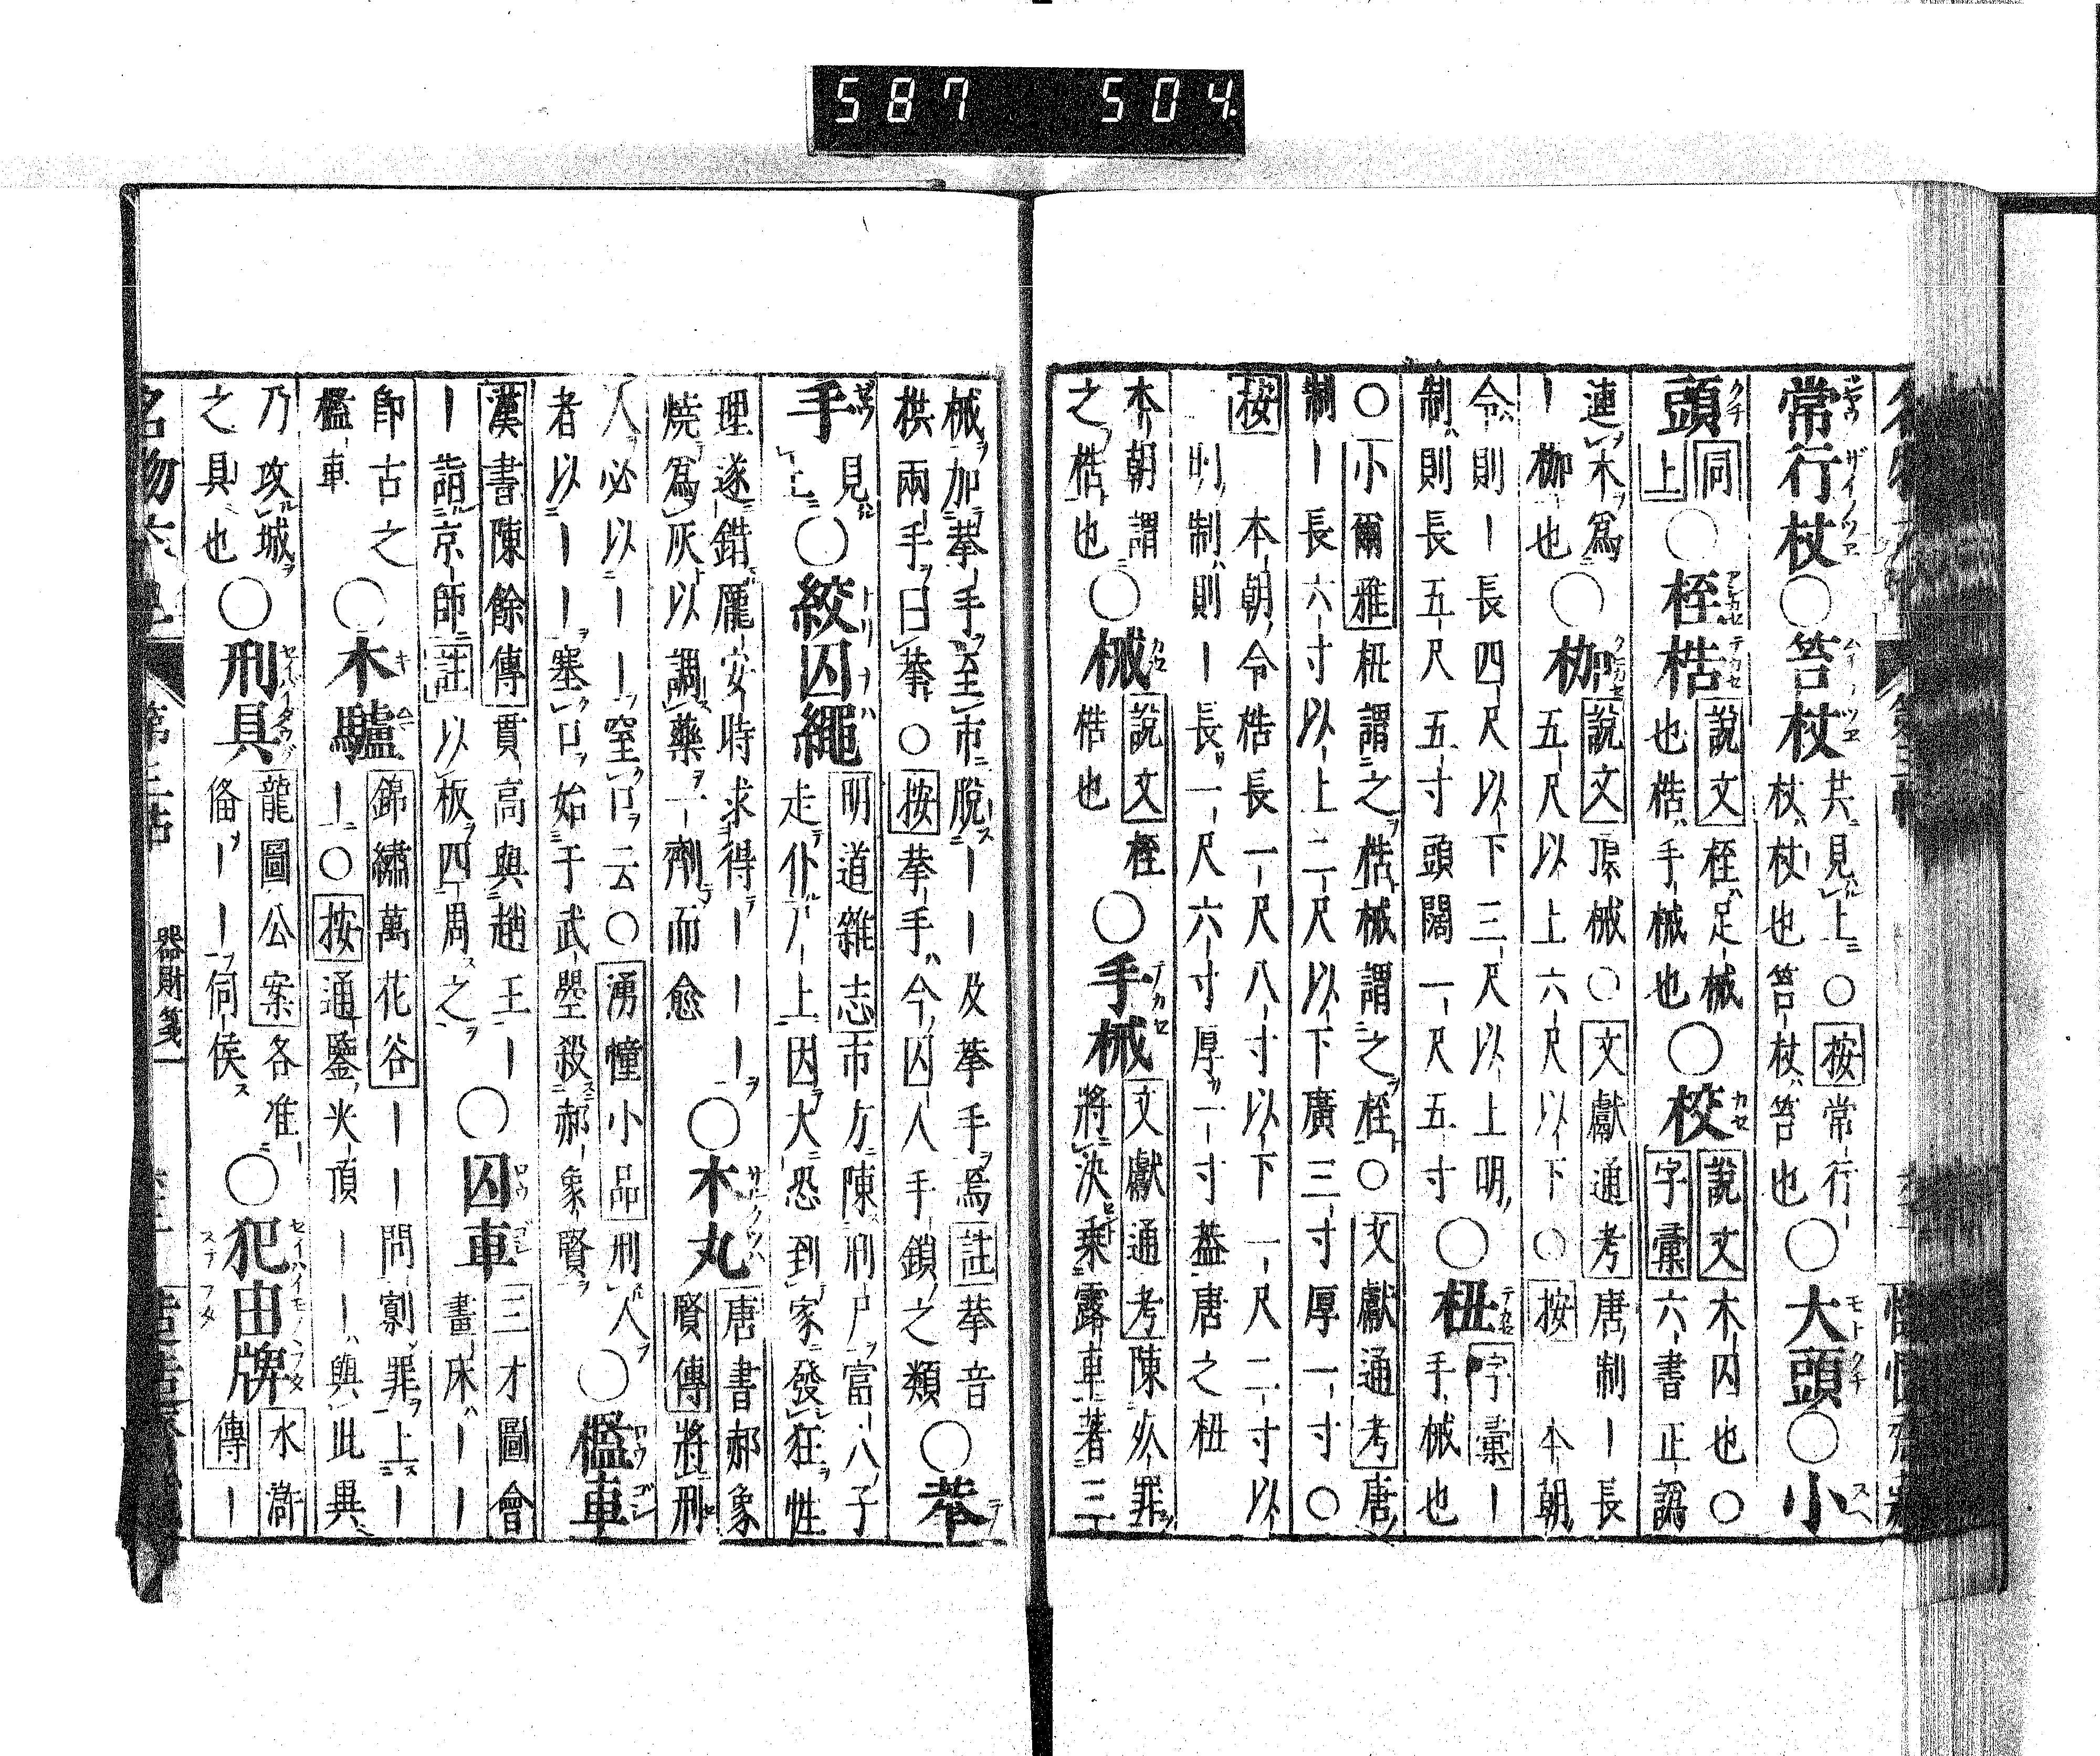 587 504
常行杖○笞杖共見上○按常行
杖杖也笞杖笞也○大頭○小
頭同上○桎梏說文桎足械
也梏手械也○校說文木囚也○
字彙六書正譌
連木爲
｜枷也○枷說文項械○文獻通考唐制｜長
五尺以上六尺以下○按本朝
令則｜長四尺以下三尺以上明
制則長五尺五寸頭闊一尺五寸○杻字彙｜
手械也
○小爾雅杻謂之梏械謂之桎○文獻通考唐
制｜長六寸以上二尺以下廣三寸厚一寸○
按本朝令梏長一尺八寸以下一尺二寸以
明制則｜長一尺六寸厚一寸蓋唐之杻
本朝謂
之梏也○械說文桎
梏也○手械文獻通考陳死罪
將決乘露車著三
械加拲手至市脫｜｜及拲手焉註拲音
栱兩手曰拲○按拲手今囚人手鎖之類○拲
手見上○絞囚繩明道雜志市方陳刑尸富人子
走仆尸上因大恐到家發狂性
理遂錯龐安時求得｜｜｜
燒爲灰以調藥一劑而愈○木丸唐書郝象
賢傳將刑
人必以｜｜窒口云○湧幢小品刑人
者以｜｜塞口始于武曌殺郝象賢○檻車
漢書陳餘傳貫高與趙王｜
｜詣京師註以板四周之○囚車三才圖會
畫床｜｜
卽古之
檻車○木驢錦繡萬花谷｜｜問劓罪上｜
｜○按通鑒夾頂｜｜與此異
乃攻城
之具也○刑具龍圖公案各准
備｜｜伺侯○犯由牌水滸
傳｜
名物六
器財箋一